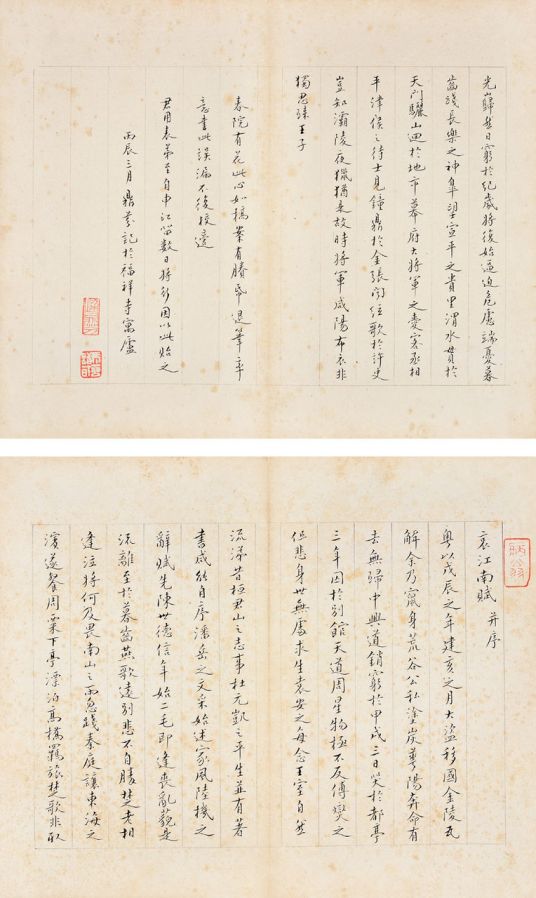 光巋然日窮於紀歲將復始逼迫危慮端憂暮
齒踐長樂之神臯望宣平之貴里渭水貫於
天門驪山迴於地市幕府大將軍之愛客丞相
平津侯之待士見鐘鼎於金張聞絃歌於許史
豈知灞陵夜獵猶是故時將軍咸陽布衣非
獨思歸王子
春院有花此心如槁案有賸帋退筆率
意書此誤漏不復校邊
君用表弟至自申江留數日將行因以此貽之
丙辰三月鼎芬記於福祥寺寓廬
哀江南賦 并序
粤以戊辰之年建亥之月大盜移國金陵瓦
解余乃竄身荒谷公私塗炭華陽奔命有
去無歸中興道銷窮於甲戌三日哭於都亭
三年囚於別館天道周星物極不反傅燮之
但悲身世無處求生袁安之每念王室自然
流涕昔桓君山之志事杜元凱之平生並有著
書咸能自序潘岳之文采始述家風陸機之
辭賦先陳世德信年始二毛即逢喪亂藐是
流離至於暮齒燕歌遠別悲不自勝楚老相
逢泣將何及畏南山之雨忽踐秦庭讓東海之
濱遂餐周粟下亭漂泊高橋羈旅楚歌非取